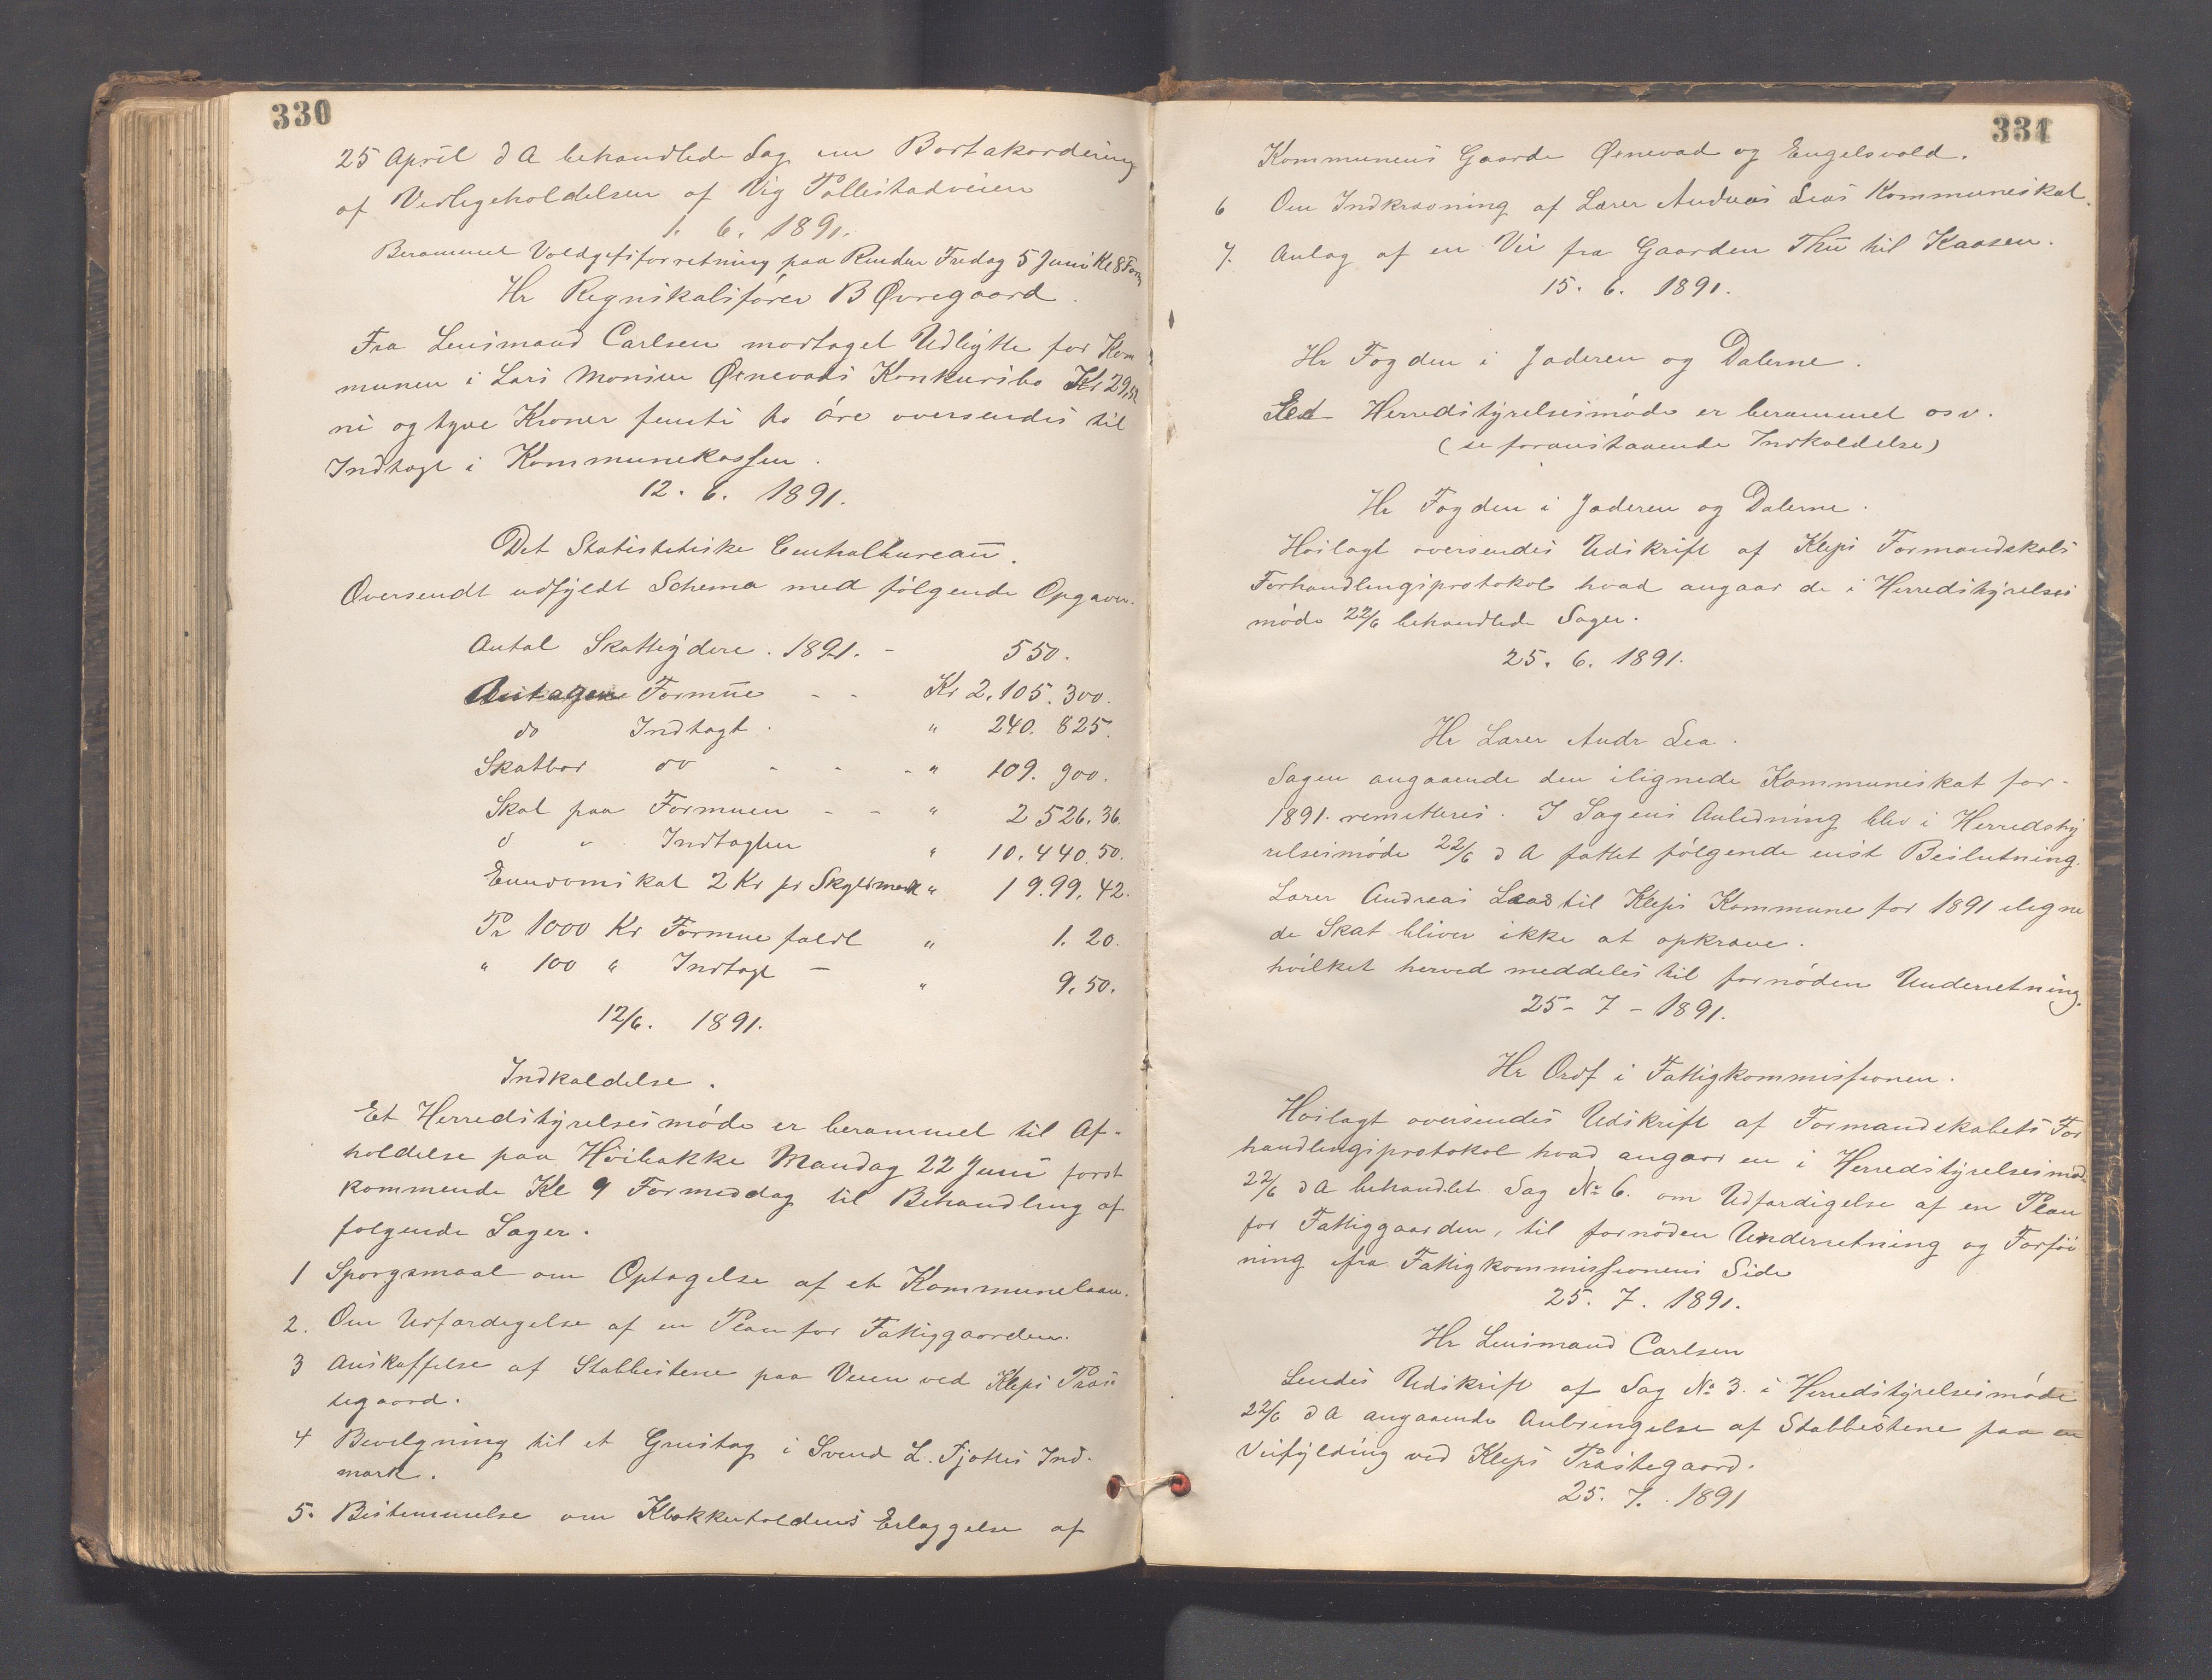 330
25 April d A behandlede Sag om Bortakordering
af Vedligeholdelsen af Vig Pollestadveien
1. 6. 1891.
Berammet Voldgiftsforretning paa Fredag 5 Juni Kl 8 Form
Hr Regnskabsfører B Øvregaard.
Fra Lensmand Carlsen modtaget Udlagte for Kom
munen i Lars Monsen Ørnevads Konkursbo Kr 29,52
ni og tyve Kroner femti to öre oversendes til
Indtægt i Kommunekassen.
12. 6. 1891.
Det Statistiske Centralbureau.
Oversendt udfyldt Schema med følgende Opgaver.
Antal Skatteydere. 1891. - 550.
Antagen Formue - - Kr 2.105.300.
do Indtægt. " 240.825.
Skatbar do - - - " 109.900.
Skat paa Formuen - - " 2526.36.
d " Indtægten " 10.440.50.
Eiendomskat 2 Kr pr Skyldmark " 19.99.42.
Pr 1000 Kr Formue faldt " 1.20.
" 100 " Indtægt - " 9.50.
12/6. 1891.
Indkaldelse.
Et Herredstyrelsesmöde er berammet til Af-
holdelse paa Høibakke Mandag 22 Juni först
kommende Kl 9 Formiddag til Behandling af
følgende Sager.
1 Spørgsmaal om Optagelse af et Kommunelaan.
2. Om Udfærdigelse af en Plan for Fattiggaarden.
3 Anskaffelse af Stabbestene paa Veien ved Kleps Præs
tegaard.
4 Bevilgning til et Grustag i Svend L. Fjøttes Ind-
mark.
5. Bestemmelse om Klokkerholdens Erlæggelse af
331
Kommunens Gaarde Ørnevad og Engelsvold.
6 Om Indkrævning af Lærer Andreas Leas Kommuneskat.
7. Anlæg af en Vei fra Gaarden Thu til Kaasen.
15. 6. 1891.
Hr Fogden i Jæderen og Dalerne.
Et Herredstyrelsesmöde er berammet osv.
(se foranstaaende Indkaldelse)
Hr Fogden i Jæderen og Dalerne.
Hoslagt oversendes Udskrift af Kleps Formandskabs
Forhandlingsprotokol hvad angaar de i Herredstyrelses
möde 22/6 behandlede Sager.
25. 6. 1891.
Hr Lærer Andr Lea.
Sagen angaaende den ilignede Kommuneskat for-
1891. remitteres. I Sagens Anledning blev i Herredsty
relsesmöde 22/6 d A fattet følgende enst Beslutning.
Lærer Andreas Leas til Kleps Kommune for 1891 iligne
de Skat bliver ikke at opkræve.
hvilket herved meddeles til fornøden Underretning.
25 - 7 - 1891.
Hr Ordf i Fattigkommissionen.
Hoslagt oversendes Udskrift af Formandskabets For
handlingsprotokol hvad angaar en i Herredstyrelsesmöde
22/6 d A behandlet Sag No 6. om Udfærdigelse af en Plan
for Fattiggaarden, til fornøden Underretning og Forföi
ning fra Fattigkommissionens Side
25. 7. 1891.
Hr Lensmand Carlsen
Sendes Udskrift af Sag No 3. i Herredstyrelsesmöde
22/6 d A angaaende Anbringelse af Stabbestene paa en
Veifylding ved Kleps Præstegaard.
25. 7. 1891